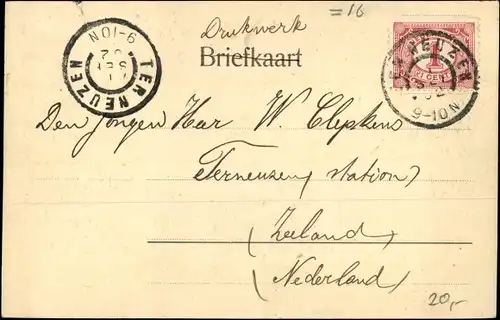 =16
Drukwerk
Briefkaart
TER NEUZEN
9-10N
1
CENT
NEUZEN
9-10N
Den Jongen Heer W. Clepkens
Terneuzen (station)
(Zeeland)
(Nederland)
20,-